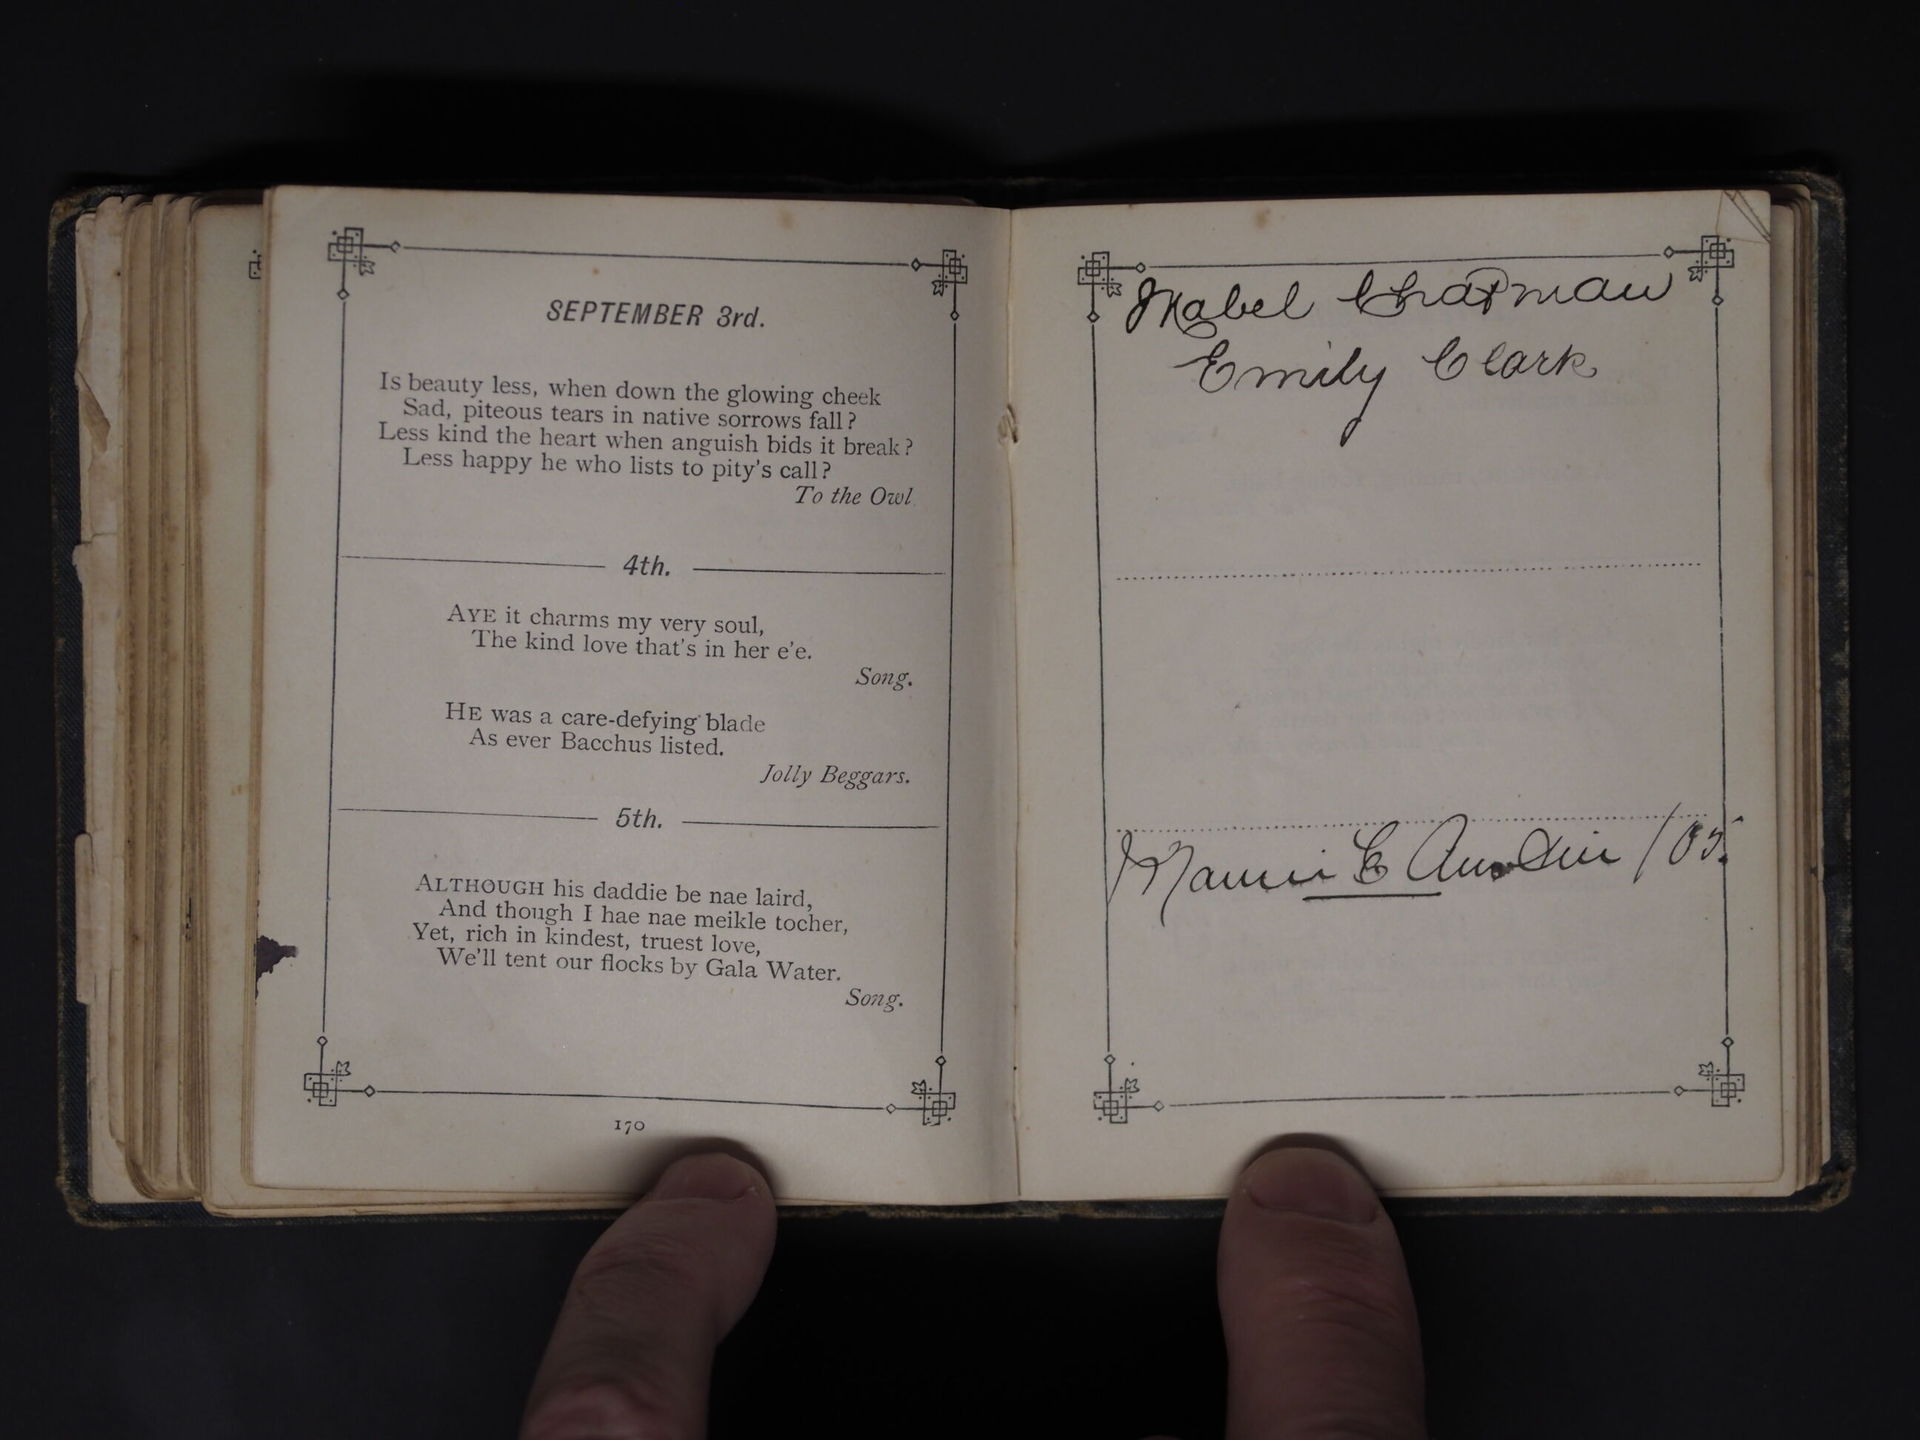 SEPTEMBER 3rd.
Is beauty less, when down the glowing cheek
Sad, piteous tears in native sorrows fall?
Less kind the heart when anguish bids it break?
Less happy he who lists to pity's call?
To the Owl.
4th.
AYE it charms my very soul,
The kind love that's in her e'e.
Song.
HE was a care-defying blade
As ever Bacchus listed.
Jolly Beggars.
5th.
ALTHOUGH his daddie be nae laird,
And though I hae nae meikle tocher,
Yet, rich in kindest, truest love,
We'll tent our flocks by Gala Water.
Song.
170
Mabel Chapman
Emily Clark
C Austin /05.